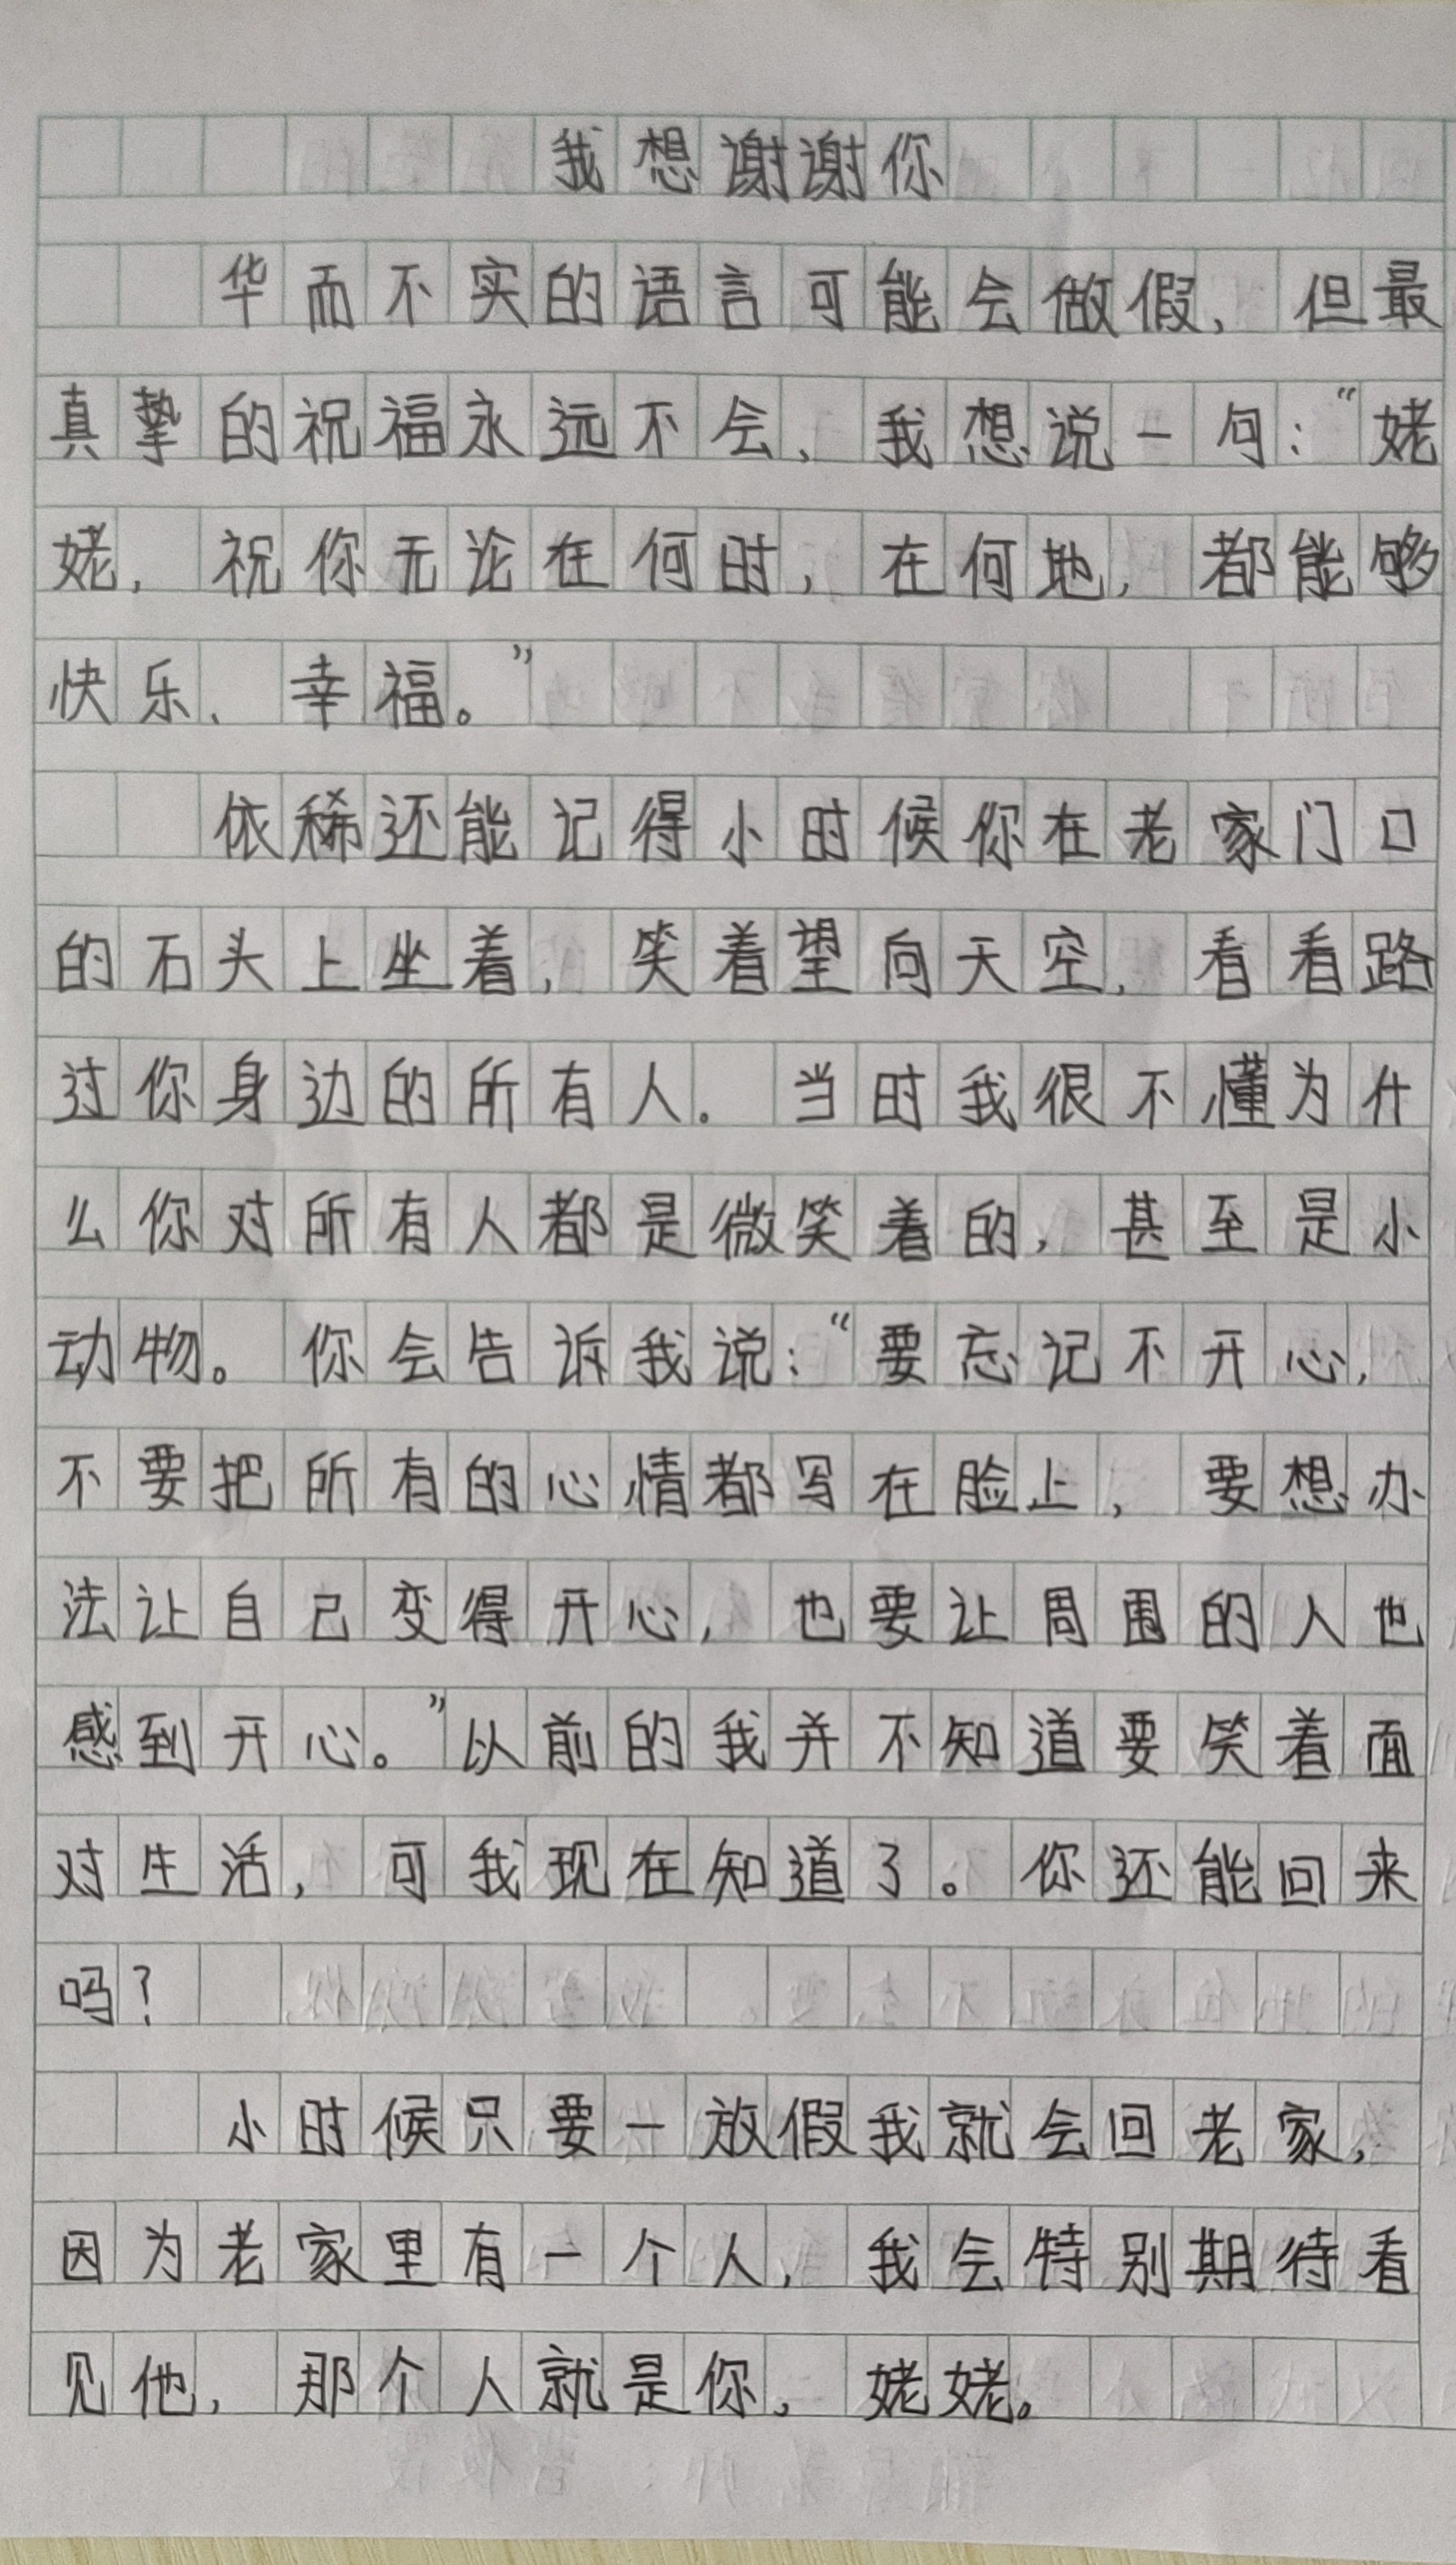 我想谢谢你
华而不实的语言可能会做假，但最
真挚的祝福永远不会，我想说一句：“姥
姥，祝你无论在何时，在何地，都能够
快乐、幸福。”
依稀还能记得小时候你在老家门口
的石头上坐着，笑着望向天空，看看路
过你身边的所有人。当时我很不懂为什
么你对所有人都是微笑着的，甚至是小
动物。你会告诉我说：“要忘记不开心，
不要把所有的心情都写在脸上，要想办
法让自己变得开心，也要让周围的人也
感到开心。”以前的我并不知道要笑着面
对生活，可我现在知道了。你还能回来
吗？
小时候只要一放假我就会回老家，
因为老家里有一个人，我会特别期待看
见他，那个人就是你，姥姥。